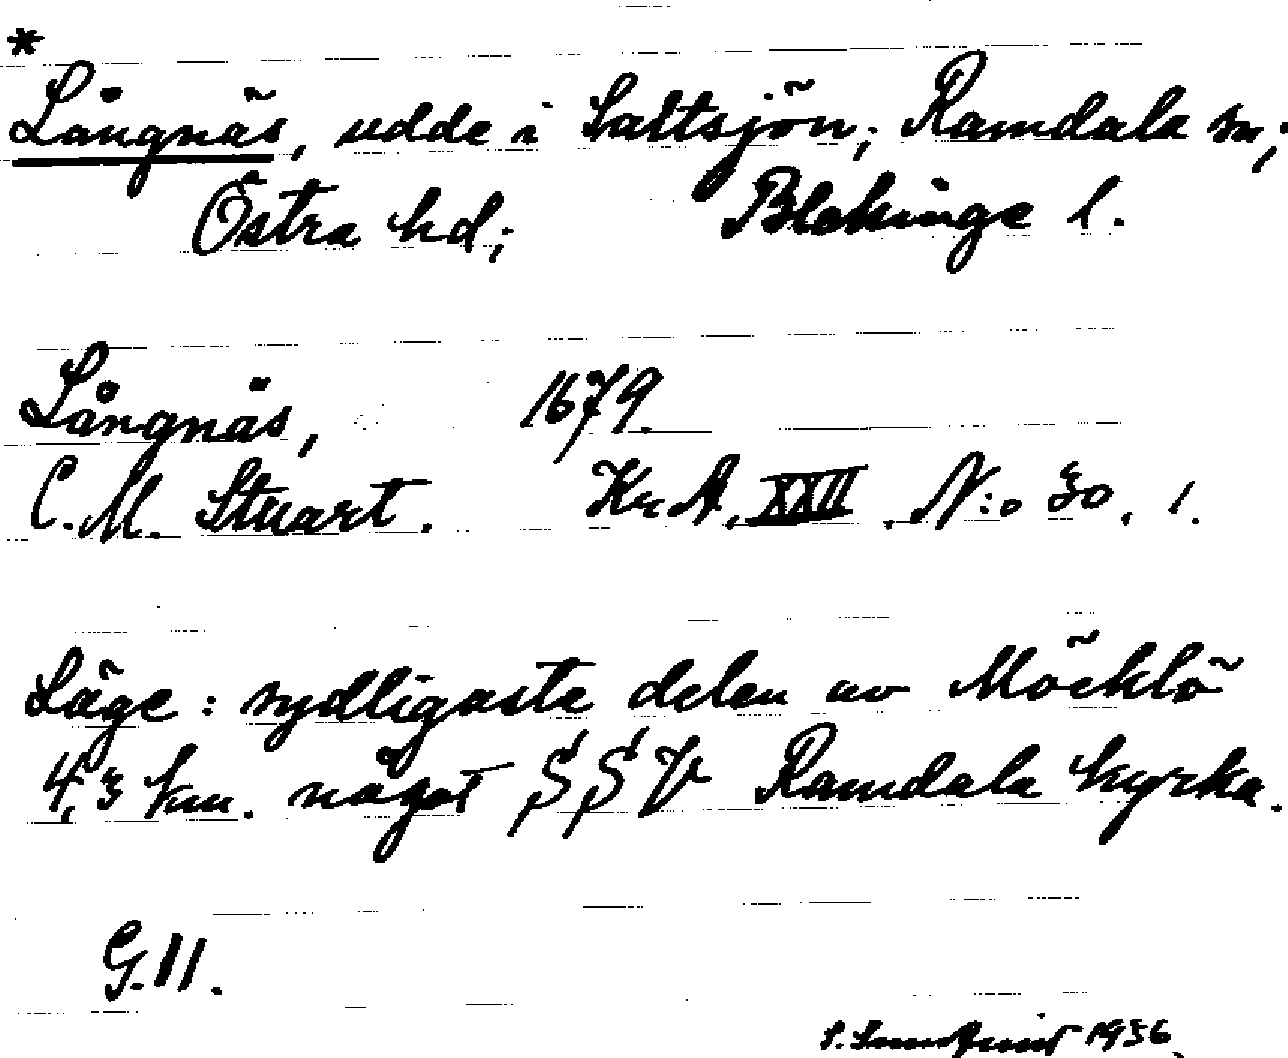 *
Långnäs, udde i Saltsjön; Ramdala sn;
Östra hd; Blekinge l.
Långnäs, 1679.
C. M. Stuart. KrA. XXII. N:o 30, 1.
Läge: sydligaste delen av Möcklö
4,3 km. något SSV Ramdala kyrka.
G.11.
1936.